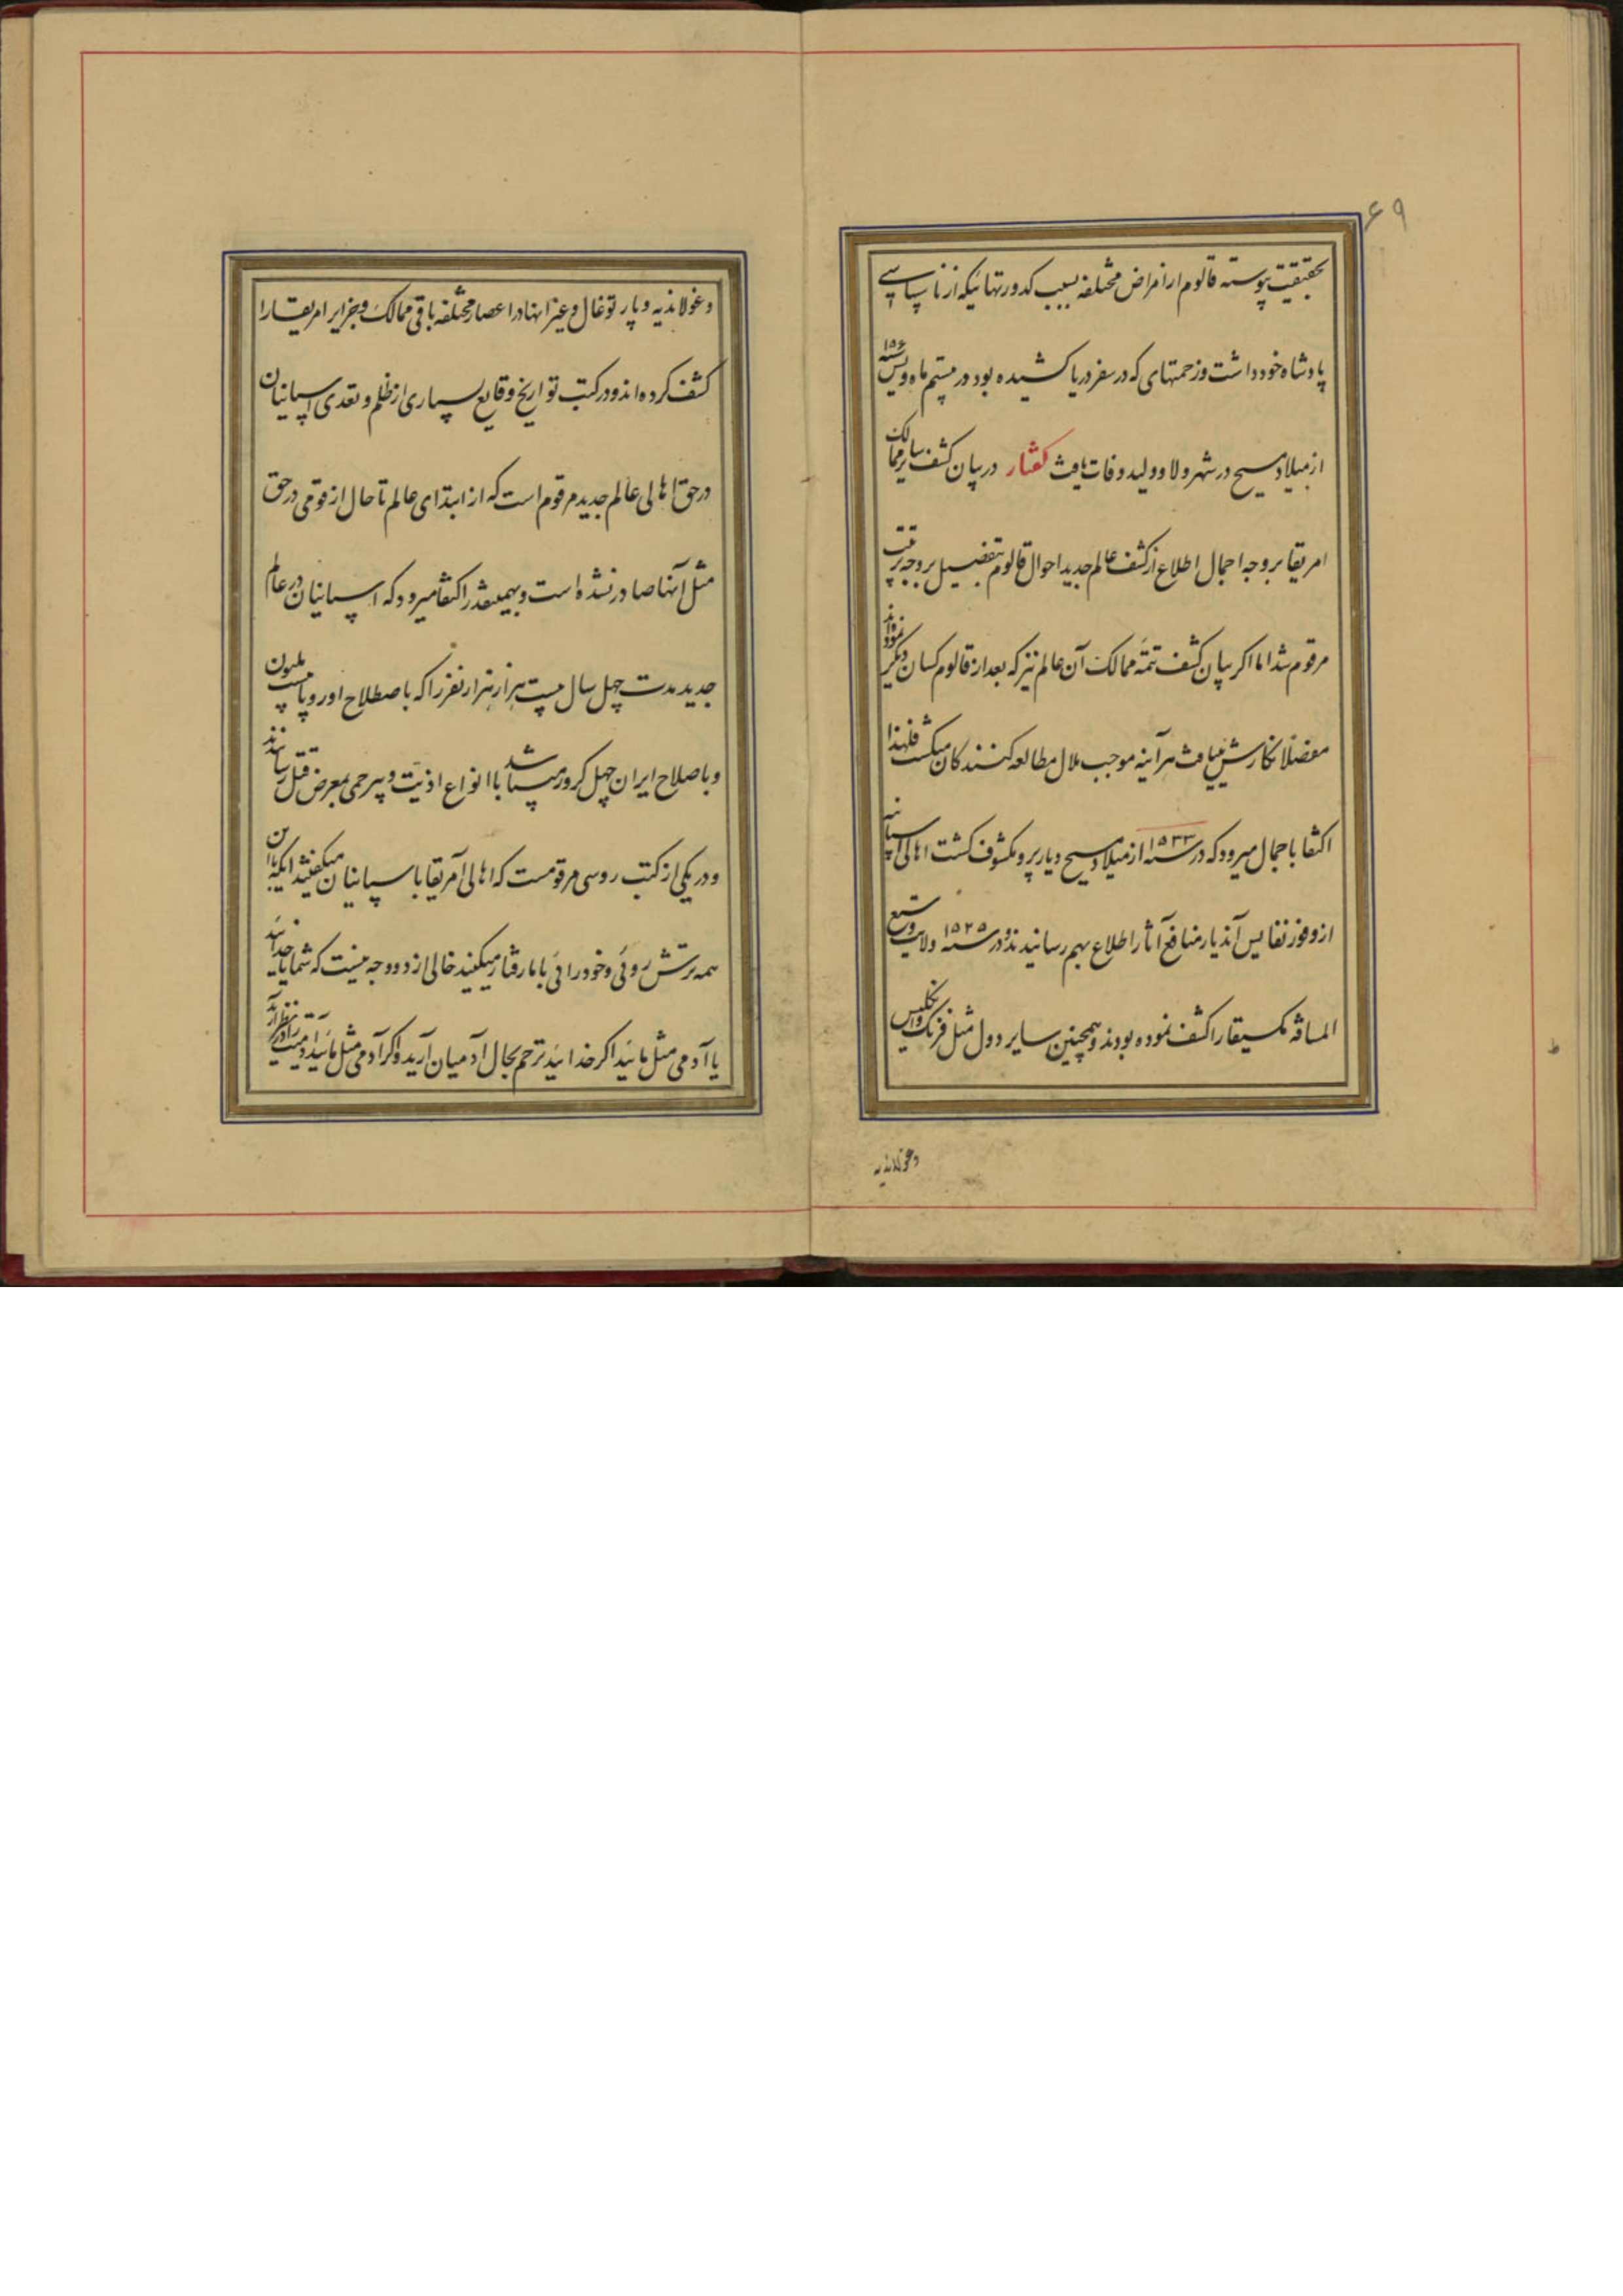 ۶۹
بحقیقت پیوسته قالوم از امراض مختلفه بسبب کدورتهائیکه از ناسپاسی
پادشاه خود داشت وزحمتهای که در سفر دریا کشیده بود در بیستم ماه ویس سنه ۱۵۶
از میلاد مسیح در شهر ولاوولید وفات یافت گفتار در بیان کشف سایر ممالک
امریقا بر وجه اجمال اطلاع از کشف عالم جدید احوال قالوم بتفصیل بر وجه ترتیب
مرقوم شد اما اکر بیان کشف تتمّه ممالک آن عالم نیز که بعد از قالوم کسان دیگر نموده‌اند
مفصلا نکارش مییافت هرآینه موجب ملال مطالعه کنندکان میکشت فلهذا
اکتفا باجمال میرود که در سنه ۱۵۳۳ از میلاد مسیح دیار پرو مکشوف کشت اهالی اسپانیه
از وفور نفایس آندیار منافع آثار اطلاع بهم رسانیدند و در سنه ۱۵۲۵ ولایت وسیع
المسافه مکسیقا را کشف نموده بودند و همچنین سایر دول مثل فرنک و انکلیس
وغولاندیه
وغولاندیه و پارتوغال وغیر اینها در اعصار مختلفه باقی ممالک وجزایر امریقا را
کشف کرده‌اند و در کتب تواریخ وقایع بسیاری از ظلم و تعدی اسپانیان
در حق اهالی عالم جدید مرقوم است که از ابتدای عالم تا حال از قومی در حق
مثل آنها صادر نشده است و بهمینقدر اکتفا میرود که اسپانیان در عالم
جدید مدت چهل سال بیست هزار هزار نفر را که باصطلاح اوروپا بیست ملیون
وباصلاح ایران چهل کرور میباشد با انواع اذیّت و بیرحمی بمعرض قتل رسانیدند
ودر یکی از کتب روسی مرقومست که اهالی آمریقا با سپانیان میکفتند اینکه با این
همه ترش روئی وخود رائی با ما رفتار میکنید خالی از دو وجه نیست که شما یا خدائید
یا آدمی مثل مائید اکر خدائید ترحم بحال آدمیان آرید واکر آدمی مثل مائید آدمیت را در نظر آرید